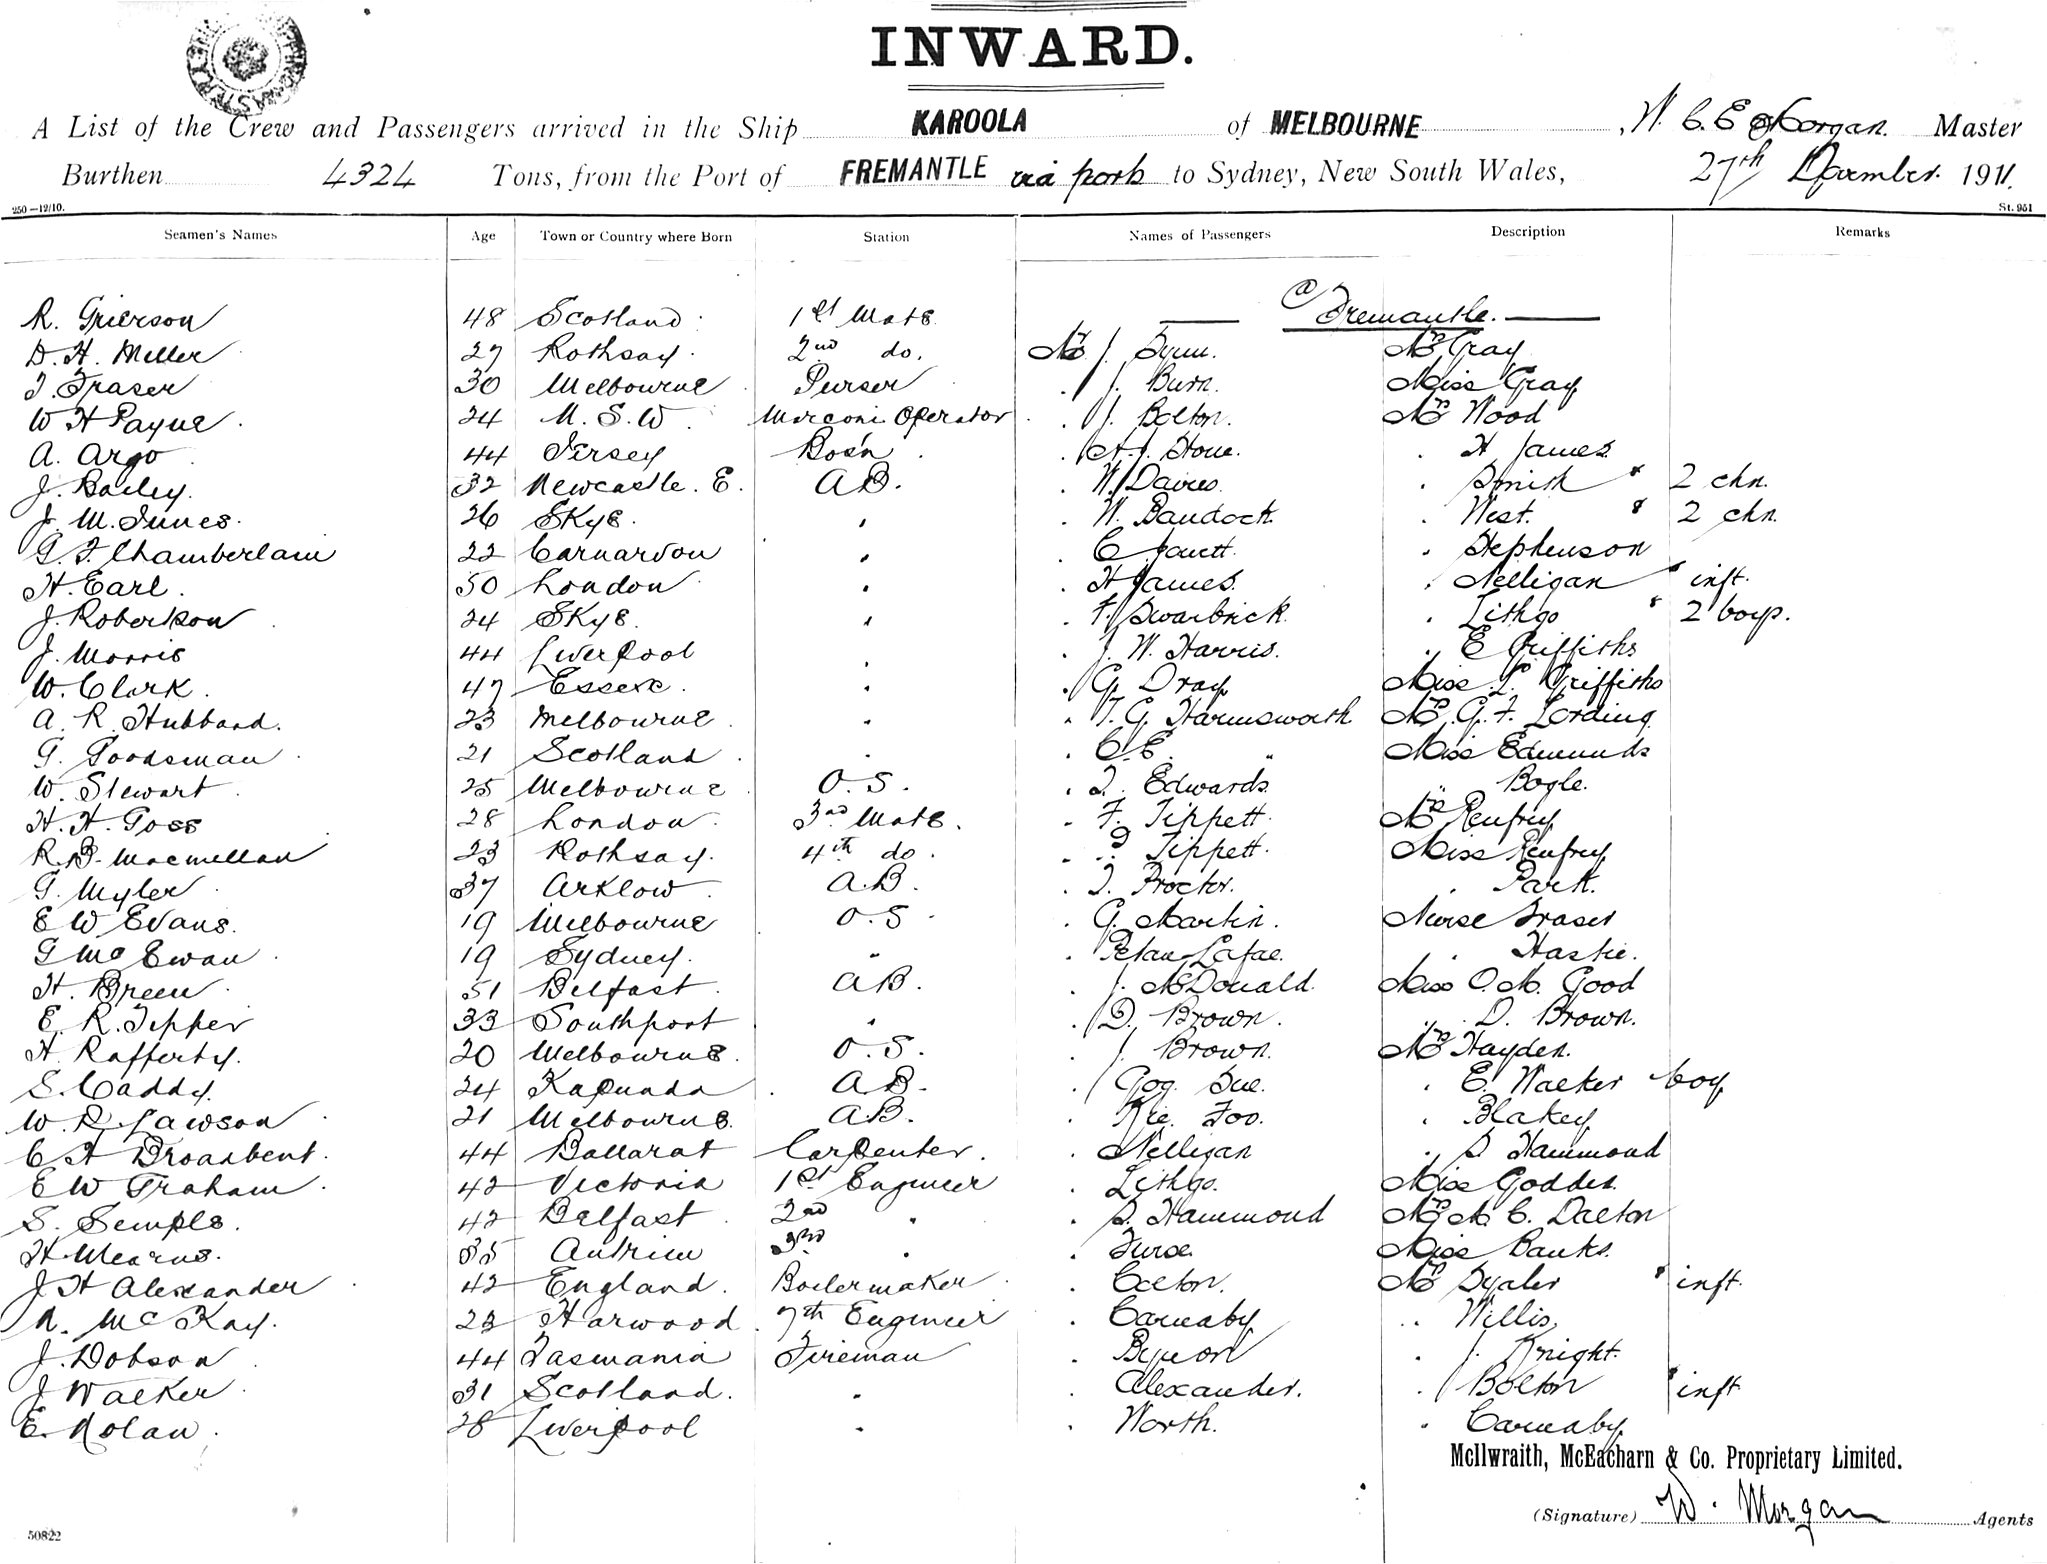 INWARD.
A List of the Crew and Passengers arrived in the Ship KAROOLA of MELBOURNE, W. C. E. Morgan. Master
Burthen 4324 Tons, from the Port of FREMANTLE via ports to Sydney, New South Wales, 27th December. 1911.
250—12/10. St. 951
Seamen's Names Age Town or Country where Born Station Names of Passengers Description Remarks
@ Fremantle.
R. Grierson 48 Scotland 1st Mate
D. H. Miller 27 Rothsay. 2nd do. Mr J. Synn. Mrs Gray
J. Fraser 30 Melbourne Purser " J. Burn. Miss Gray
W H Payne 24 N. S. W Marconi Operator " J. Bolton. Mrs Wood
A. Argo 44 Jersey Bos'n " A. J. Stone. " H James
J. Bailey. 32 Newcastle. E. A.B. " W. Davies. " Smith & 2 chn.
J. M. Innes. 26 Skye. " " W. Baudock. " West. & 2 chn.
G. F. Chamberlain 22 Carnarvon " " C Jarrett. " Stephenson
H. Earl. 50 London " " H James. " Nelligan & inft.
J. Robertson 24 Skye. " " F. Swarbrick. " Lithgo & 2 boys.
J. Morris 44 Liverpool " " J. W. Harris. " E Griffiths
W. Clark. 47 Essex. " " G. Dray Miss L. Griffiths
A. R. Hubbard. 23 Melbourne. " " T. G. Harmsworth Mrs G. F. Lording
G. Goodsman 21 Scotland " " C. E. " Miss Edmunds
W. Stewart 25 Melbourne O. S. " T. Edwards. " Bogle.
H. H. Goss 28 London. 3rd Mate. " F. Tippett. Mrs Renfrey
R. B. Macmillan 23 Rothsay. 4th do. " Tippett. Miss Renfrey
G. Myler 37 Arklow A.B. " T. Proctor. " Park.
E W Evans. 19 Melbourne O. S " G. Martin. Nurse Fraser
G Mc Ewan 19 Sydney. " " Lafae. " Hastie.
H. Breen 51 Belfast. A.B. " J. McDonald. Miss O. M. Good
E. R. Tipper 33 Southport " " D. Brown. " D. Brown.
H. Rafferty. 20 Melbourne. O. S. " J. Brown. Mrs Hayden.
S. Caddy. 24 Kapunda A.B. " Gog. Sue. " E. Walker boy
W. R. Lawson 21 Melbourne. A.B. " Kie. Foo. " Blakey
C H Broadbent. 44 Ballarat Carpenter. " Nelligan " S Hammond
E W Graham. 42 Victoria 1st Engineer " Lithgo. Miss Godden.
S. Semple. 42 Belfast 2nd " " S. Hammond Mrs M. C. Dalton
H. Mearns. 35 Antrim 3rd " " Furse. Miss Banks.
J. H Alexander 42 England. Boilermaker " Colton. Mrs Syaler & inft.
A. McKay. 23 Harwood 7th Engineer " Carnaby " Willis
J. Dobson 44 Tasmania Fireman " Byron " J. Knight.
J Walker 31 Scotland. " " Alexander. " J Bolton & inft
E. Nolan. 28 Liverpool " " Worth. " Carnaby
McIlwraith, McEacharn & Co. Proprietary Limited.
(Signature) W. Morgan Agents
50822